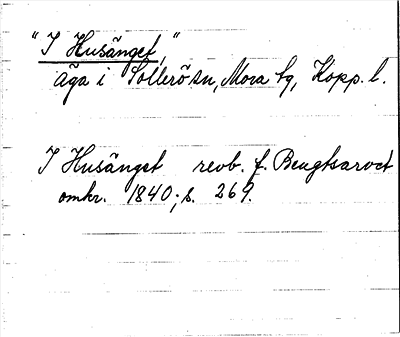 "I Husänget,"
äga i Sollerö sn, Mora tg, Kopp. l.
I Husänget revb. f. Bengtsarvet
omkr. 1840; s. 269.